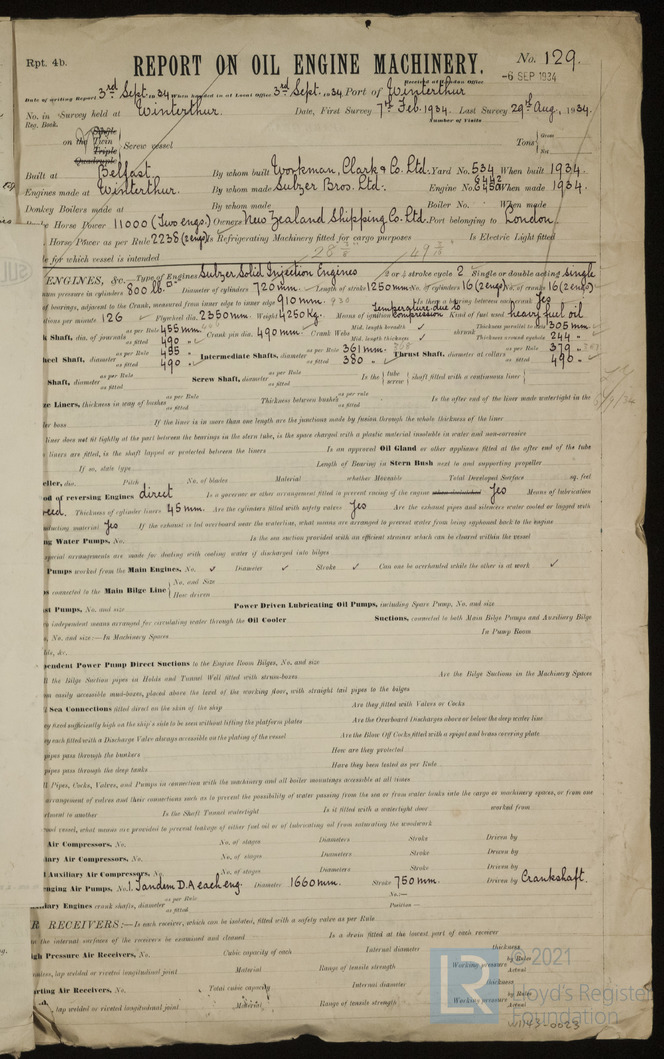 Rpt. 4b.
REPORT ON OIL ENGINE MACHINERY.
No. 129.
Received at London Office
-6 SEP 1934
Date of writing Report 3rd Sept. 1934 When handed in at Local Office 3rd Sept. 1934 Port of Winterthur
No. in Survey held at Winterthur. Date, First Survey 7th Feb. 1934. Last Survey 29th Aug, 1934.
Reg. Book. Number of Visits
Single
on the Twin Screw vessel Tons Gross
Triple Net
Quadruple
Built at Belfast By whom built Workman, Clark & Co. Ltd. Yard No. 534 When built 1934.
Engines made at Winterthur. By whom made Sulzer Bros. Ltd. Engine No. When made 1934.
Donkey Boilers made at By whom made Boiler No. When made
Horse Power 11000 (Two engs.) Owners New Zealand Shipping Co. Ltd. Port belonging to London.
Horse Power as per Rule 2238 (2 engs) Is Refrigerating Machinery fitted for cargo purposes Is Electric Light fitted
for which vessel is intended
ENGINES, &c. Type of Engines Sulzer Solid Injection Engines 2 or 4 stroke cycle 2 Single or double acting Single
pressure in cylinders 800 lb. Diameter of cylinders 720 mm. Length of stroke 1250 mm. No. of cylinders 16 (2 engs) No. of cranks 16 (2 engs)
of bearings, adjacent to the Crank, measured from inner edge to inner edge 910 mm. 930 Is there a bearing between each crank Yes
per minute 126 Flywheel dia. 2350 mm. Weight 4250 kg. Means of ignition Temperature due to compression Kind of fuel used heavy fuel oil
Shaft, dia. of journals as per Rule 455 mm as fitted 490 Crank pin dia. 490 mm. Crank Webs Mid. length breadth Mid. length thickness shrunk Thickness parallel to axis 305 mm Thickness around eyehole 244
Shafts, diameter as per Rule 455 as fitted 490 Intermediate Shafts, diameter as per Rule 361 mm. as fitted 380 Thrust Shaft, diameter at collars as per Rule 379 as fitted 490
Shaft, diameter as per Rule as fitted Screw Shaft, diameter as per Rule as fitted Is the tube screw shaft fitted with a continuous liner
Liners, thickness in way of bushes as per Rule as fitted Thickness between bushes as per rule as fitted Is the after end of the liner made watertight in the
boss If the liner is in more than one length are the junctions made by fusion through the whole thickness of the liner
liner does not fit tightly at the part between the bearings in the stern tube, is the space charged with a plastic material insoluble in water and non-corrosive
liners are fitted, is the shaft lapped or protected between the liners Is an approved Oil Gland or other appliance fitted at the after end of the tube
If so, state type Length of Bearing in Stern Bush next to and supporting propeller
dia. Pitch No. of blades Material whether Moveable Total Developed Surface sq. feet
of reversing Engines direct Is a governor or other arrangement fitted to prevent racing of the engine when declutched Yes Means of lubrication
Thickness of cylinder liners 45 mm. Are the cylinders fitted with safety valves Yes Are the exhaust pipes and silencers water cooled or lagged with
material Yes If the exhaust is led overboard near the waterline, what means are arranged to prevent water from being syphoned back to the engine
Water Pumps, No. Is the sea suction provided with an efficient strainer which can be cleared within the vessel
special arrangements are made for dealing with cooling water if discharged into bilges
Pumps worked from the Main Engines, No. Diameter Stroke Can one be overhauled while the other is at work
connected to the Main Bilge Line No. and Size
How driven
Pumps, No. and size Power Driven Lubricating Oil Pumps, including Spare Pump, No. and size
independent means arranged for circulating water through the Oil Cooler Suctions, connected to both Main Bilge Pumps and Auxiliary Bilge
No. and size:—In Machinery Spaces In Pump Room
&c.
Power Pump Direct Suctions to the Engine Room Bilges, No. and size
the Bilge Suction pipes in Holds and Tunnel Well fitted with strum-boxes Are the Bilge Suctions in the Machinery Spaces
easily accessible mud-boxes, placed above the level of the working floor, with straight tail pipes to the bilges
Sea Connections fitted direct on the skin of the ship Are they fitted with Valves or Cocks
fixed sufficiently high on the ship's side to be seen without lifting the platform plates Are the Overboard Discharges above or below the deep water line
each fitted with a Discharge Valve always accessible on the plating of the vessel Are the Blow Off Cocks fitted with a spigot and brass covering plate
pipes pass through the bunkers How are they protected
pipes pass through the deep tanks Have they been tested as per Rule
Pipes, Cocks, Valves, and Pumps in connection with the machinery and all boiler mountings accessible at all times
arrangement of valves and their connections such as to prevent the possibility of water passing from the sea or from water tanks into the cargo or machinery spaces, or from one
to another Is the Shaft Tunnel watertight Is it fitted with a watertight door worked from
vessel, what means are provided to prevent leakage of either fuel oil or of lubricating oil from saturating the woodwork
Air Compressors, No. No. of stages Diameters Stroke Driven by
Air Compressors, No. No. of stages Diameters Stroke Driven by
Auxiliary Air Compressors, No. No. of stages Diameters Stroke Driven by
Air Pumps, No. 1. Tandem D.A each eng. Diameter 1660 mm. Stroke 750 mm. Driven by Crankshaft.
Engines crank shafts, diameter as per Rule as fitted No.:— Position —
RECEIVERS:—Is each receiver, which can be isolated, fitted with a safety valve as per Rule
the internal surfaces of the receivers be examined and cleaned Is a drain fitted at the lowest part of each receiver
Pressure Air Receivers, No. Cubic capacity of each Internal diameter thickness
lap welded or riveted longitudinal joint Material Range of tensile strength Working pressure by Rules Actual
Air Receivers, No. Total cubic capacity Internal diameter thickness
lap welded or riveted longitudinal joint Material Range of tensile strength Working pressure by Rules Actual
LR © 2021
Lloyd's Register
Foundation
W1143-0023